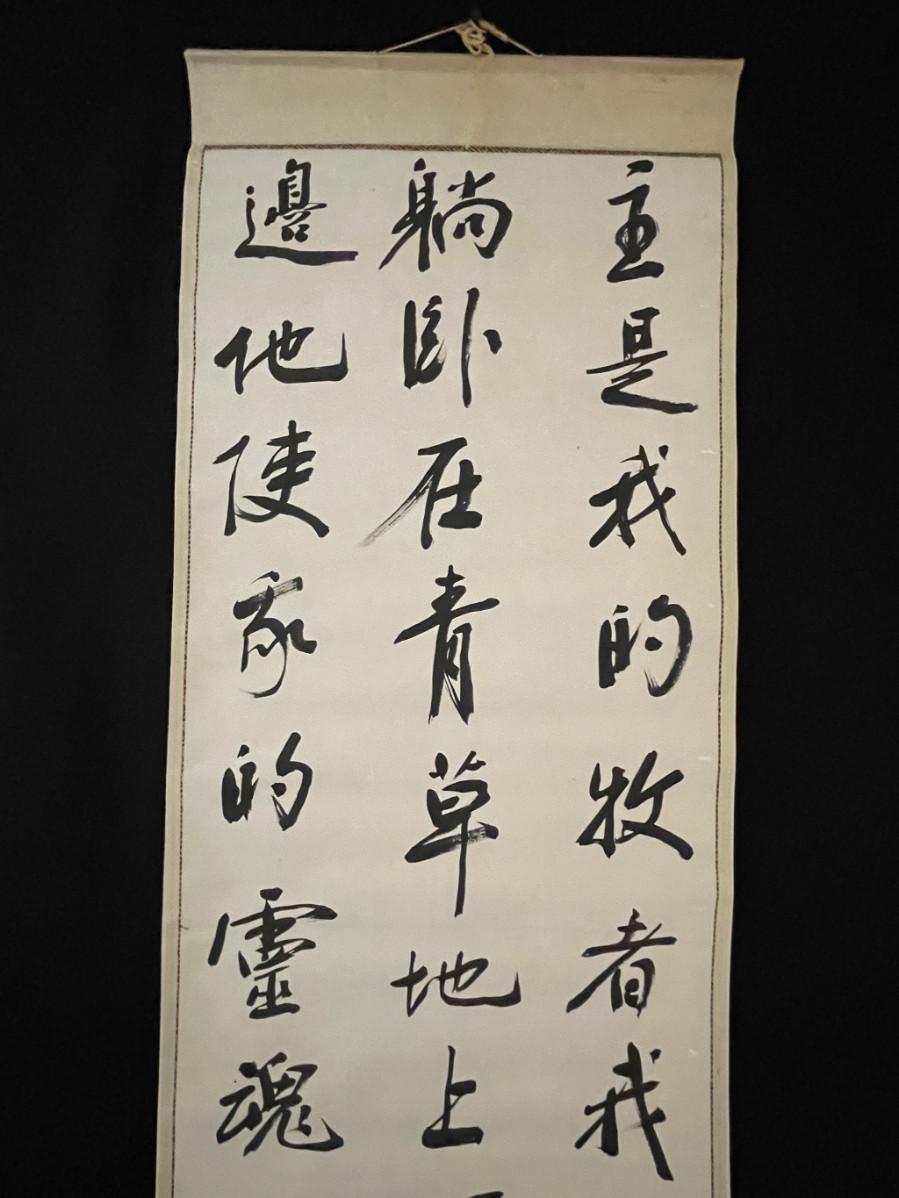 主是我的牧者我
躺卧在青草地上
邊他使我的靈魂